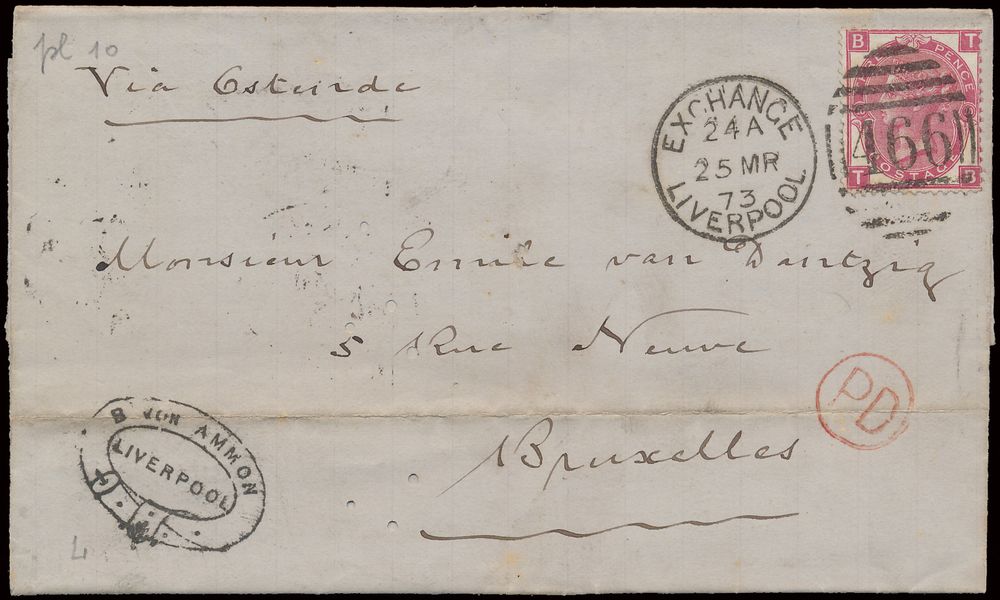 pl 10
Via Ostende
EXCHANGE
24 A
25 MR
73
LIVERPOOL
B T
THREE PENCE
466
POSTAGE
T B
Monsieur Emile van Dantzig
5 Rue Neuve
PD
Bruxelles
VON AMMON
LIVERPOOL
4